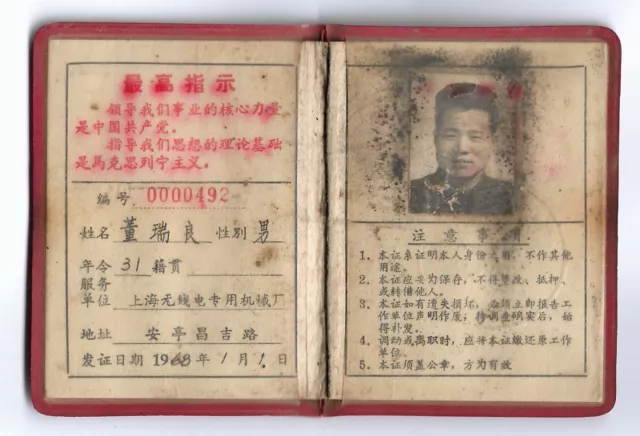 最高指示
领导我们事业的核心力量
是中国共产党。
指导我们思想的理论基础
是馬克思列宁主义。
编号 0000492
姓名 董瑞良 性别 男
年令 31 籍贯
服务
单位 上海无线电专用机械厂
地址 安亭昌吉路
发证日期 1968年1月1日
注意事项
1. 本证系证明本人身份之用，不作其他
用途。
2. 本证应妥为保存，不得涂改、抵押、
或转借他人。
3. 本证如有遗失损坏，必须立即报告工
作单位声明作废，待调查确实后，始
得补发。
4. 调动或离职时，应将本证缴还原工作
单位。
5. 本证须盖公章，方为有效